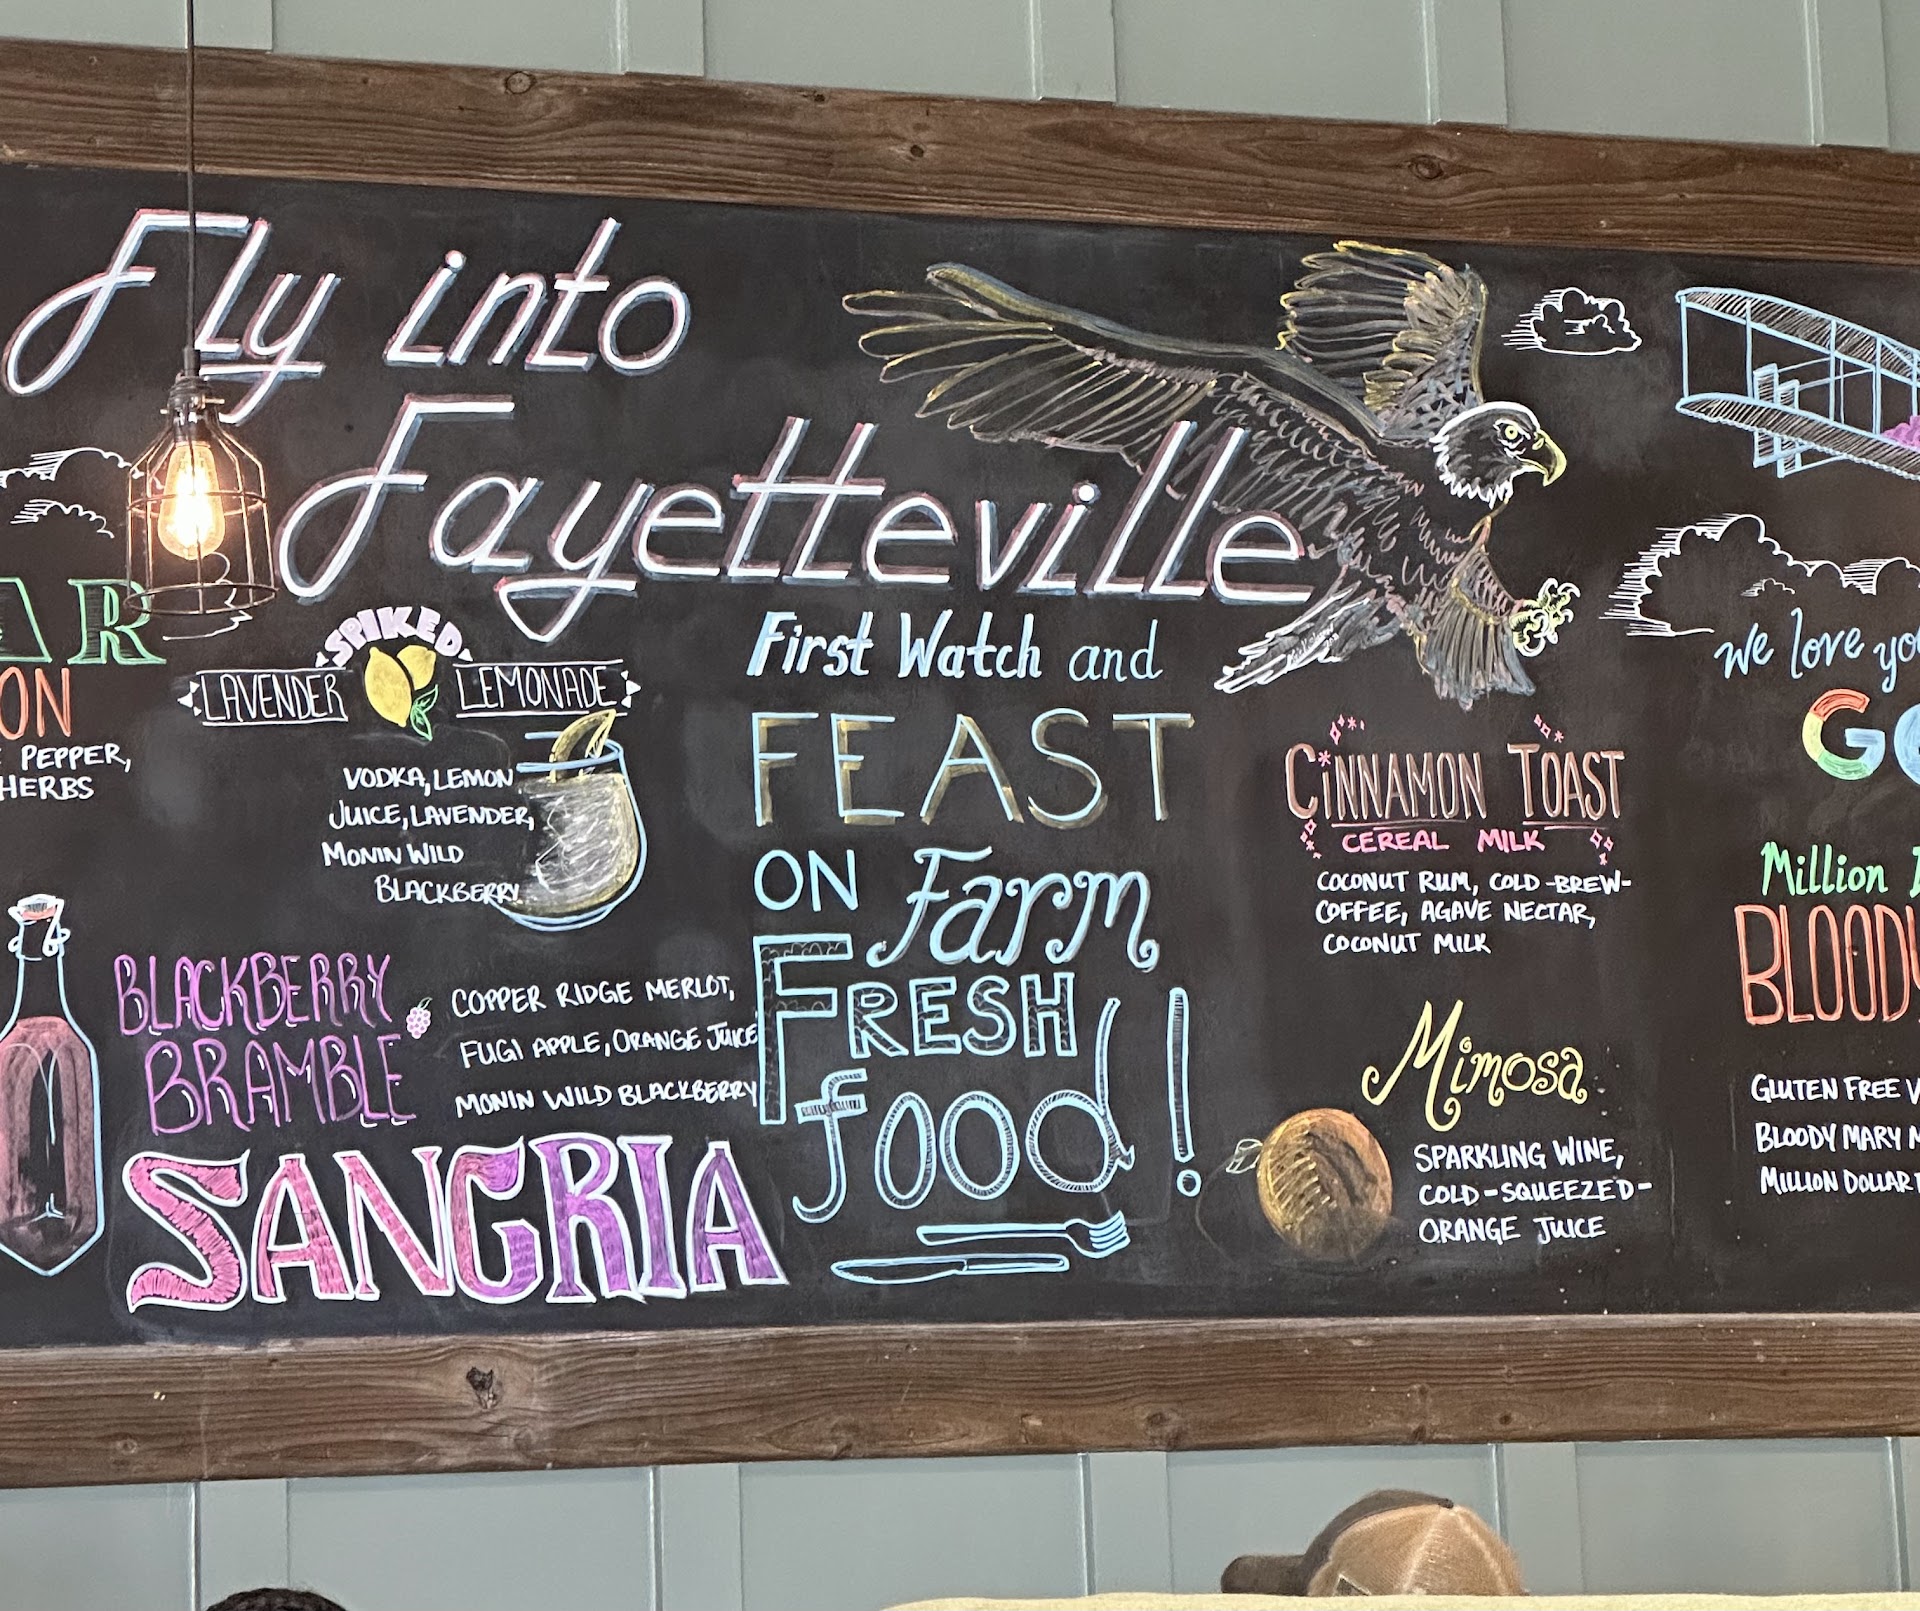 Fly into
Fayetteville
ON
PEPPER,
HERBS
SPIKED
LAVENDER LEMONADE
VODKA, LEMON
JUICE, LAVENDER,
MONIN WILD
BLACKBERRY
BLACKBERRY
BRAMBLE
SANGRIA
COPPER RIDGE MERLOT,
FUGI APPLE, ORANGE JUICE
MONIN WILD BLACKBERRY
First Watch and
FEAST
ON Farm
FRESH
food!
CINNAMON TOAST
CEREAL MILK
COCONUT RUM, COLD-BREW-
COFFEE, AGAVE NECTAR,
COCONUT MILK
Mimosa
SPARKLING WINE,
COLD-SQUEEZED-
ORANGE JUICE
We love
Million
BLOODY
GLUTEN FREE
BLOODY MARY
MILLION DOLLAR